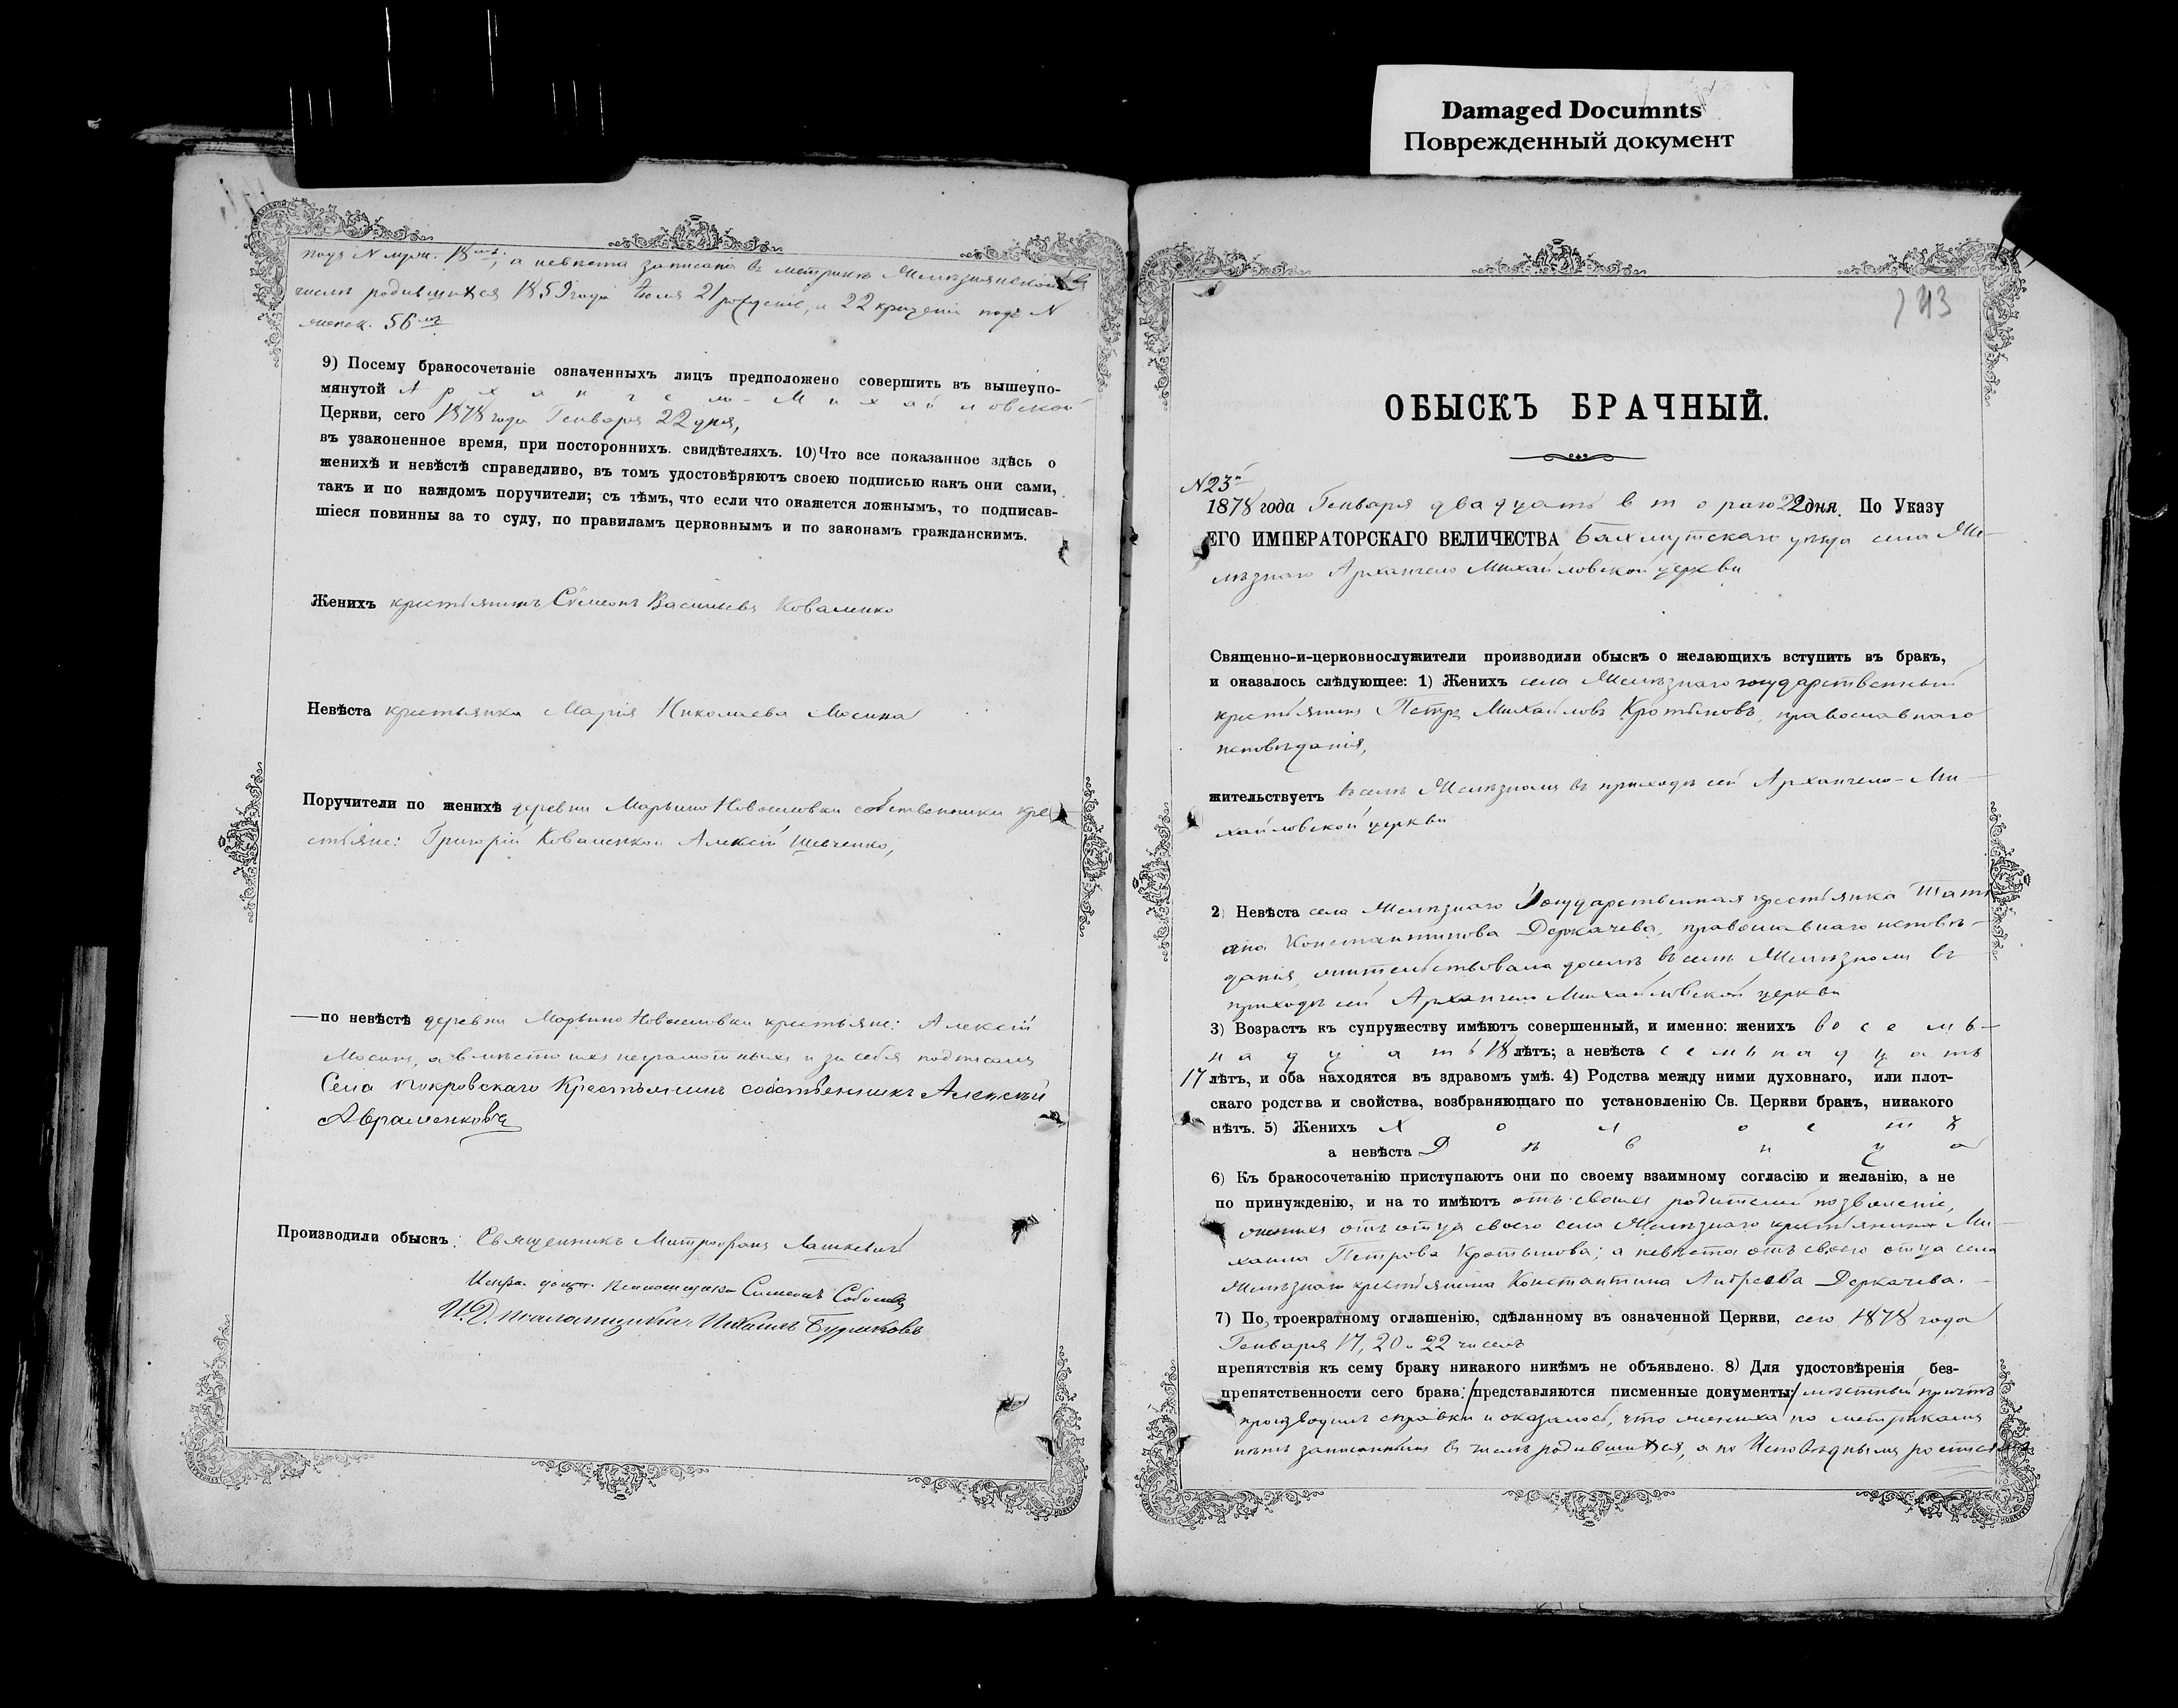 Damaged Documnts
Поврежденный документ
подъ N муж. 18мъ; а невѣста записана въ метрикѣ Желѣзнянской въ
числѣ родившихся 1859 года Июля 21 рожденіе, и 22 крещеніе подъ N
женск. 56мъ
9) Посему бракосочетаніе означенныхъ лицъ предположено совершить въ вышеупо-
мянутой Архангело-Михайловской
Церкви, сего 1878 года Генваря 22 дня,
въ узаконенное время, при постороннихъ. свидѣтеляхъ. 10) Что все показанное здѣсь о
женихѣ и невѣстѣ справедливо, въ томъ удостовѣряютъ своею подписью какъ они сами,
такъ и по каждомъ поручители; съ тѣмъ, что если что окажется ложнымъ, то подписав-
шіеся повинны за то суду, по правиламъ церковнымъ и по законамъ гражданскимъ.
Женихъ крестьянинъ Сѵмеонъ Васильевъ Коваленко
Невѣста крестьянка Марія Николаева Мосина
Поручители по женихѣ деревни Марьино Новоселовки собственники кре-
стьяне: Григорій Коваленко и Алексій Шевченко,
по невѣстѣ деревни Марьино Новоселовки крестьяне: Алексій
Мосинъ, а вмѣсто ихъ неграмотныхъ и за себя подписалъ
Села Покровскаго Крестьянинъ собственникъ Алексѣй
Авраменковъ
Производили обыскъ: Священникъ Митрофанъ Лашкевичъ
Испр. долж. Псаломщика Симеонъ
И. Д. псаломщика Михаилъ
143
ОБЫСКЪ БРАЧНЫЙ.
N 23й
1878 года Генваря двадцать втораго 22 дня. По Указу
ЕГО ИМПЕРАТОРСКАГО ВЕЛИЧЕСТВА Бахмутскаго уѣзда села Же-
лѣзнаго Архангело Михайловской церкви
Священно-и-церковнослужители производили обыскъ о желающихъ вступить въ бракъ,
и оказалось слѣдующее: 1) Женихъ села Желѣзнаго государственный
крестьянинъ Петръ Михайловъ Кротьковъ, православнаго
исповѣданія,
жительствуетъ въ селѣ Желѣзномъ въ приходѣ сей Архангело-Ми-
хайловской церкви
2) Невѣста села Желѣзнаго Государственная крестьянка Тать
яна Константинова Деркачева, православнаго исповѣ-
данія, жительствовала доселѣ въ селѣ Желѣзномъ въ
приходѣ сей Архангело Михайловской церкви
3) Возрастъ къ супружеству имѣютъ совершенный, и именно: женихъ восемь-
надцать 18 лѣтъ; а невѣста семьнадцать
17 лѣтъ, и оба находятся въ здравомъ умѣ. 4) Родства между ними духовнаго, или плот-
скаго родства и свойства, возбраняющаго по установленію Св. Церкви бракъ, никакого
нѣтъ. 5) Женихъ Холостъ
а невѣста Дѣвица
6) Къ бракосочетанію приступаютъ они по своему взаимному согласію и желанію, а не
по принужденію, и на то имѣютъ отъ своихъ родителей позволеніе,
женихъ отъ отца своего села Желѣзнаго крестьянина Ми-
хаила Петрова Кротькова; а невѣста отъ своего отца села
Желѣзнаго крестьянина Константина Андреева Деркачева.
7) По троекратному оглашенію, сдѣланному въ означенной Церкви, сего 1878 года
Генваря 17, 20 и 22 числъ
препятствія къ сему браку никакого никѣмъ не объявлено. 8) Для удостовѣренія без-
препятственности сего брака: /представляются писменные документы:/ мѣстный причтъ
производилъ справки и оказалось, что жениха по метрикамъ
нѣтъ записаннымъ въ числѣ родившихся, а по Исповѣднымъ